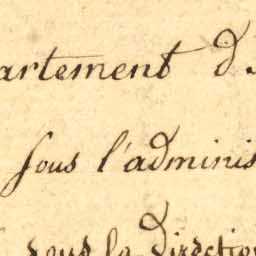 artement d
sous l'adminis
sous la directio